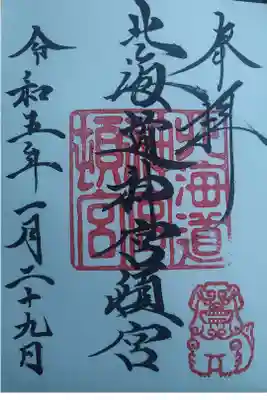 奉拝
北海道神宮頓宮
北海道
神宮
頓宮
令和五年一月二十九日